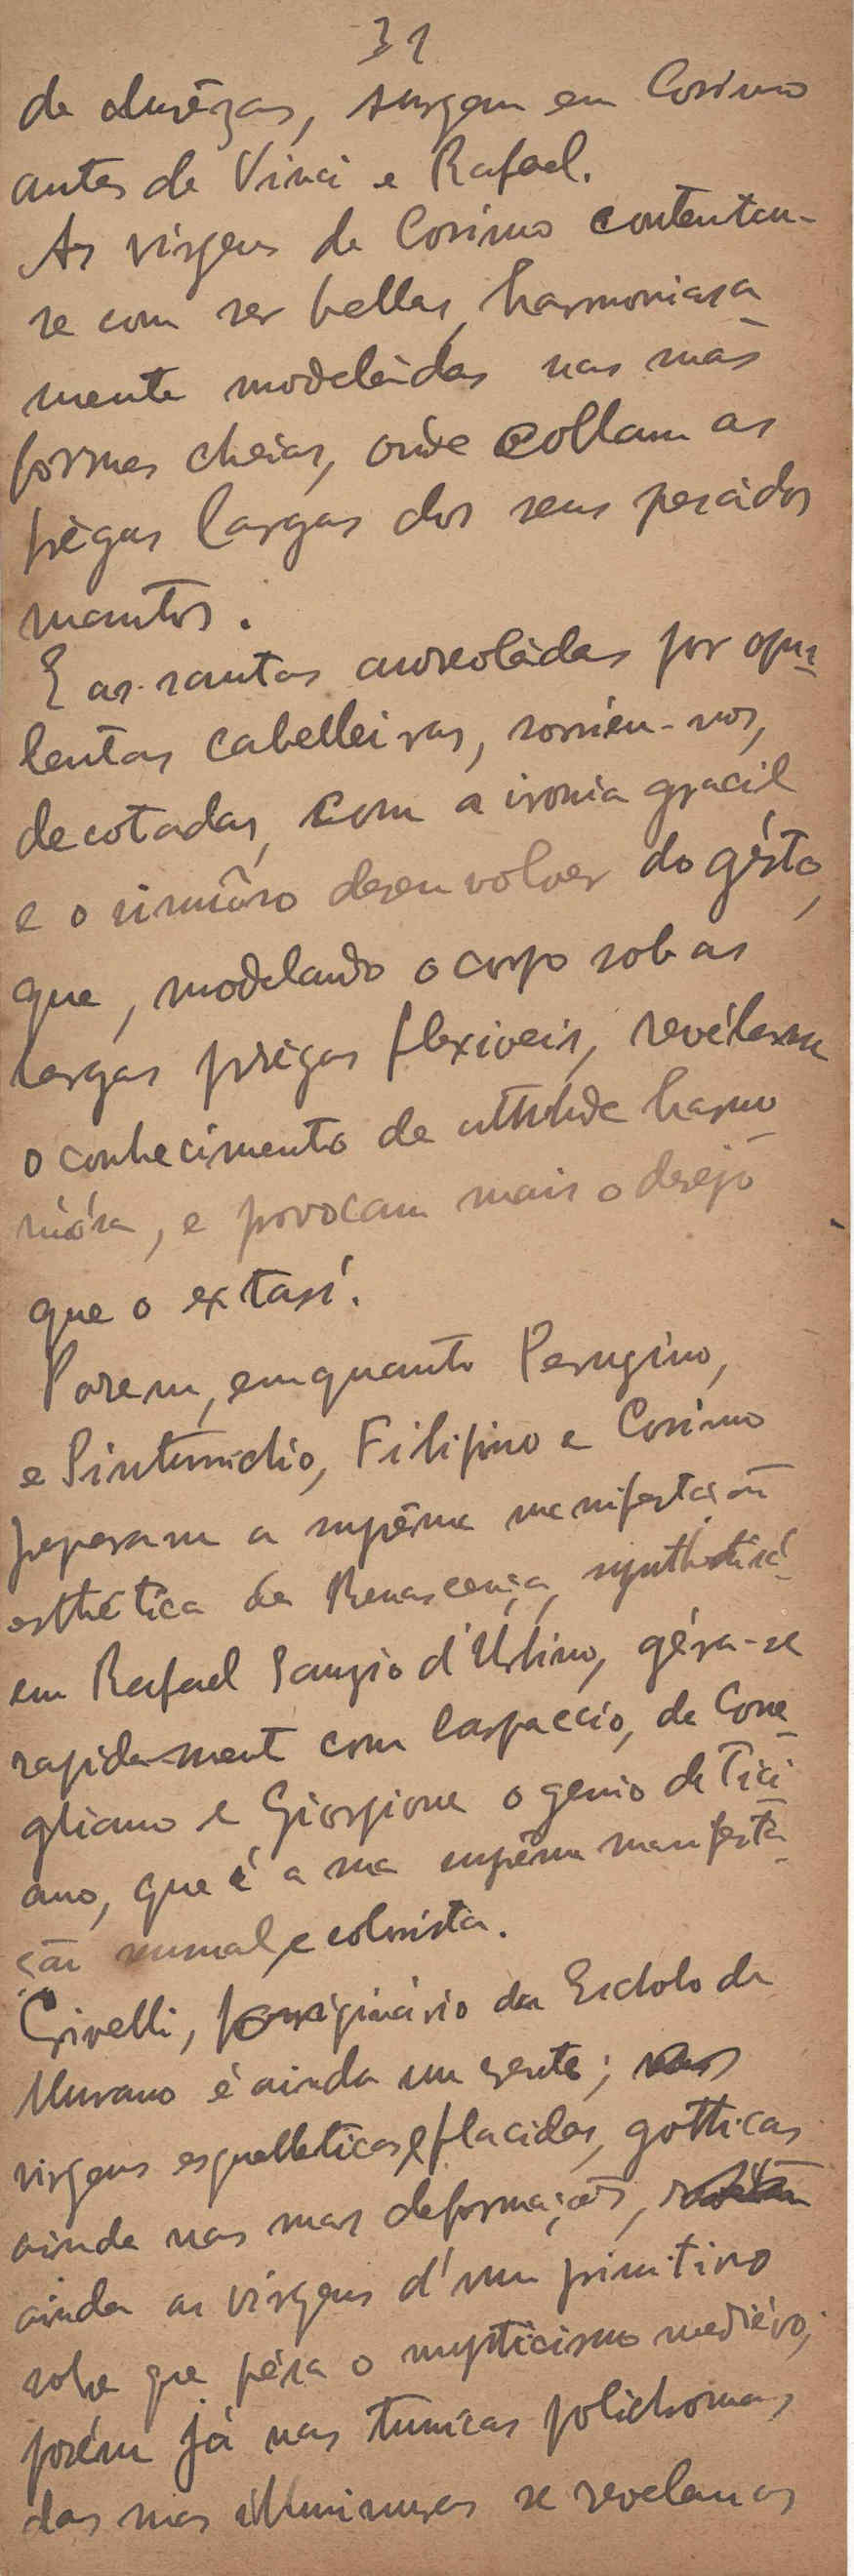 31
de durêzas, surgem em Cosimo
antes de Vinci e Rafael.
As virgens de Cosimo contentam-
se com ser bellas, harmoniosa
mente modeládas nas suas
formas cheias, onde collam as
prégas largas dos seus pesádos
mantos.
E as santas aureoládas por opu-
lentas cabelleiras, sorriem-nos,
decotadas, com a ironia gracil
e o sinuôso desenvolver do gésto,
que, modelando o corpo sob as
largas prégas flexiveis, revélam
o conhecimento da attitude harmo
niósa, e provocam mais o desejo
que o extasi.
Porem, emquanto Perugino,
e Pinturricchio, Filipino e Cosimo
preparam a suprêma manifestação
esthética da Renascença, synthetisá-
em Rafael Sanzio d'Urbino, géra-se
rapidament com Carpaccio, de Cone
gliano e Giorgione o genio de Tici
ano, que é a sua suprêma manifesta-
ção sensual e colorista.
Crivelli, originário da Escolo de
Murano é ainda um crente;
virgens esqueleticas e flacidas, gotticas
ainda nas suas deformações,
ainda as virgens d'um primitivo
sobre que pésa o mysticismo mediévo,
porém já nas tunicas polichromas
das suas illuminuras se revelam os